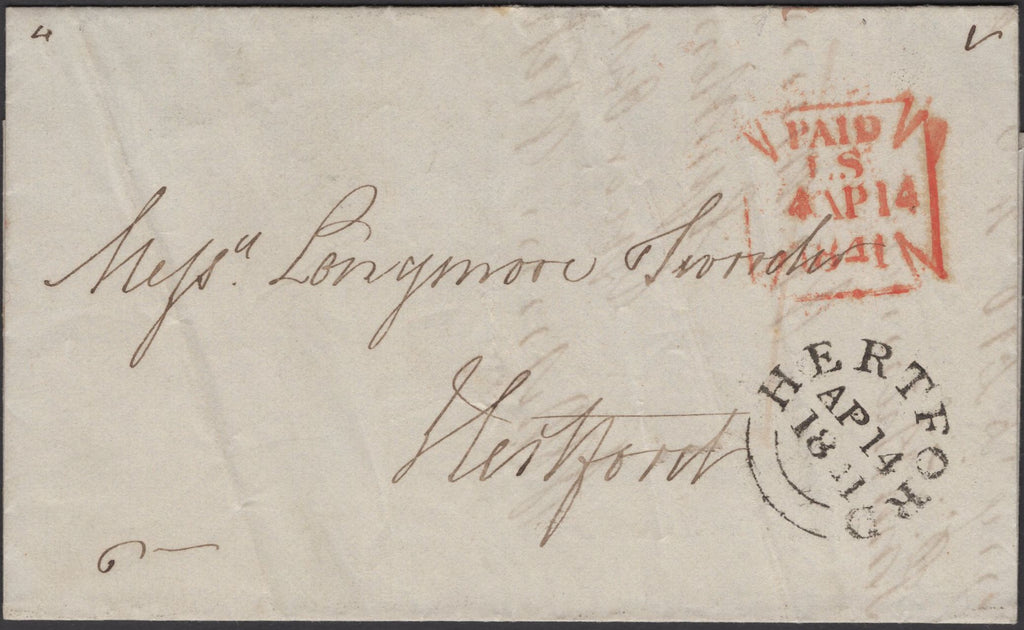 PAID
LS
4 AP 14
1841
Messrs. Longmore Sworder
Hertford
HERTFORD
AP 14
1841
6